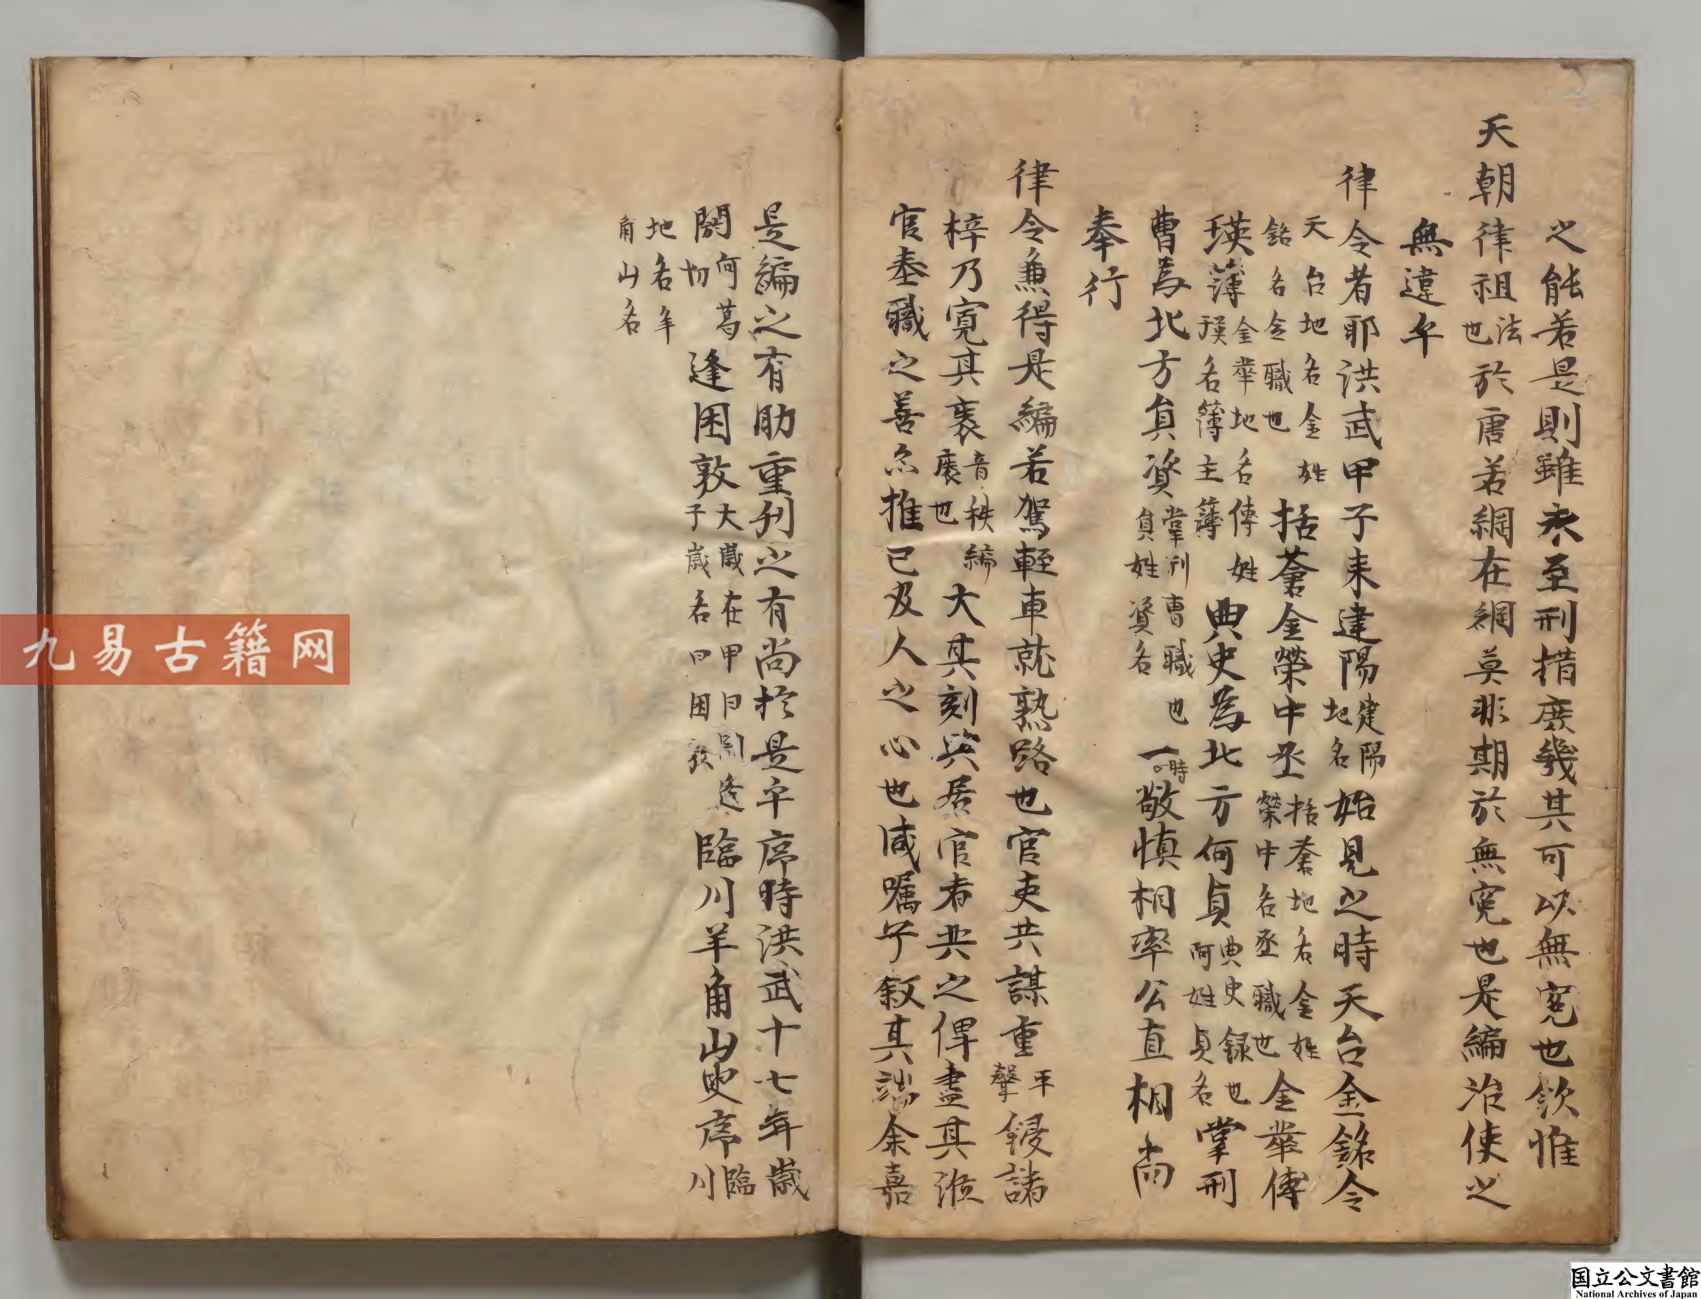 之能若是則雖未至刑措庶幾其可以無冤也欽惟
天朝律祖法也於唐若網在綱莫非期於無冤也是編治使之
無違乎
律令者耶洪武甲子来建陽建陽地名始見之時天台金銘令
天台地名金姓銘名令職也括蒼金榮中丞括蒼地名金姓榮中名丞職也金華傅
瑛簿金華地名傅姓瑛名簿主簿典史為北方何貞典史録也何姓貞名掌刑
曹為北方員資掌刑曹職也員姓資名一時敬慎相率公直相尚
奉行
律令兼得是編若駕輕車就熟路也官吏共謀重平聲鋟諸
梓乃寬其袠音秩編袠也大其刻與居官者共之俾盡其涖
官奉職之善亦推己及人之心也咸嘱予叙其端余嘉
是編之有助重刊之有尚於是乎序時洪武十七年歲
閼何葛切逢困敦大歲在甲曰閼逢子歲名曰困敦臨川羊角山叟序臨川
地名羊角山名
九易古籍网
国立公文書館
National Archives of Japan